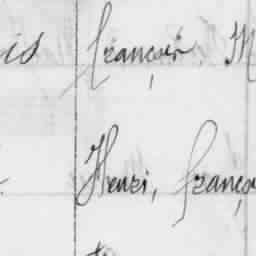 is François M
Henri, França